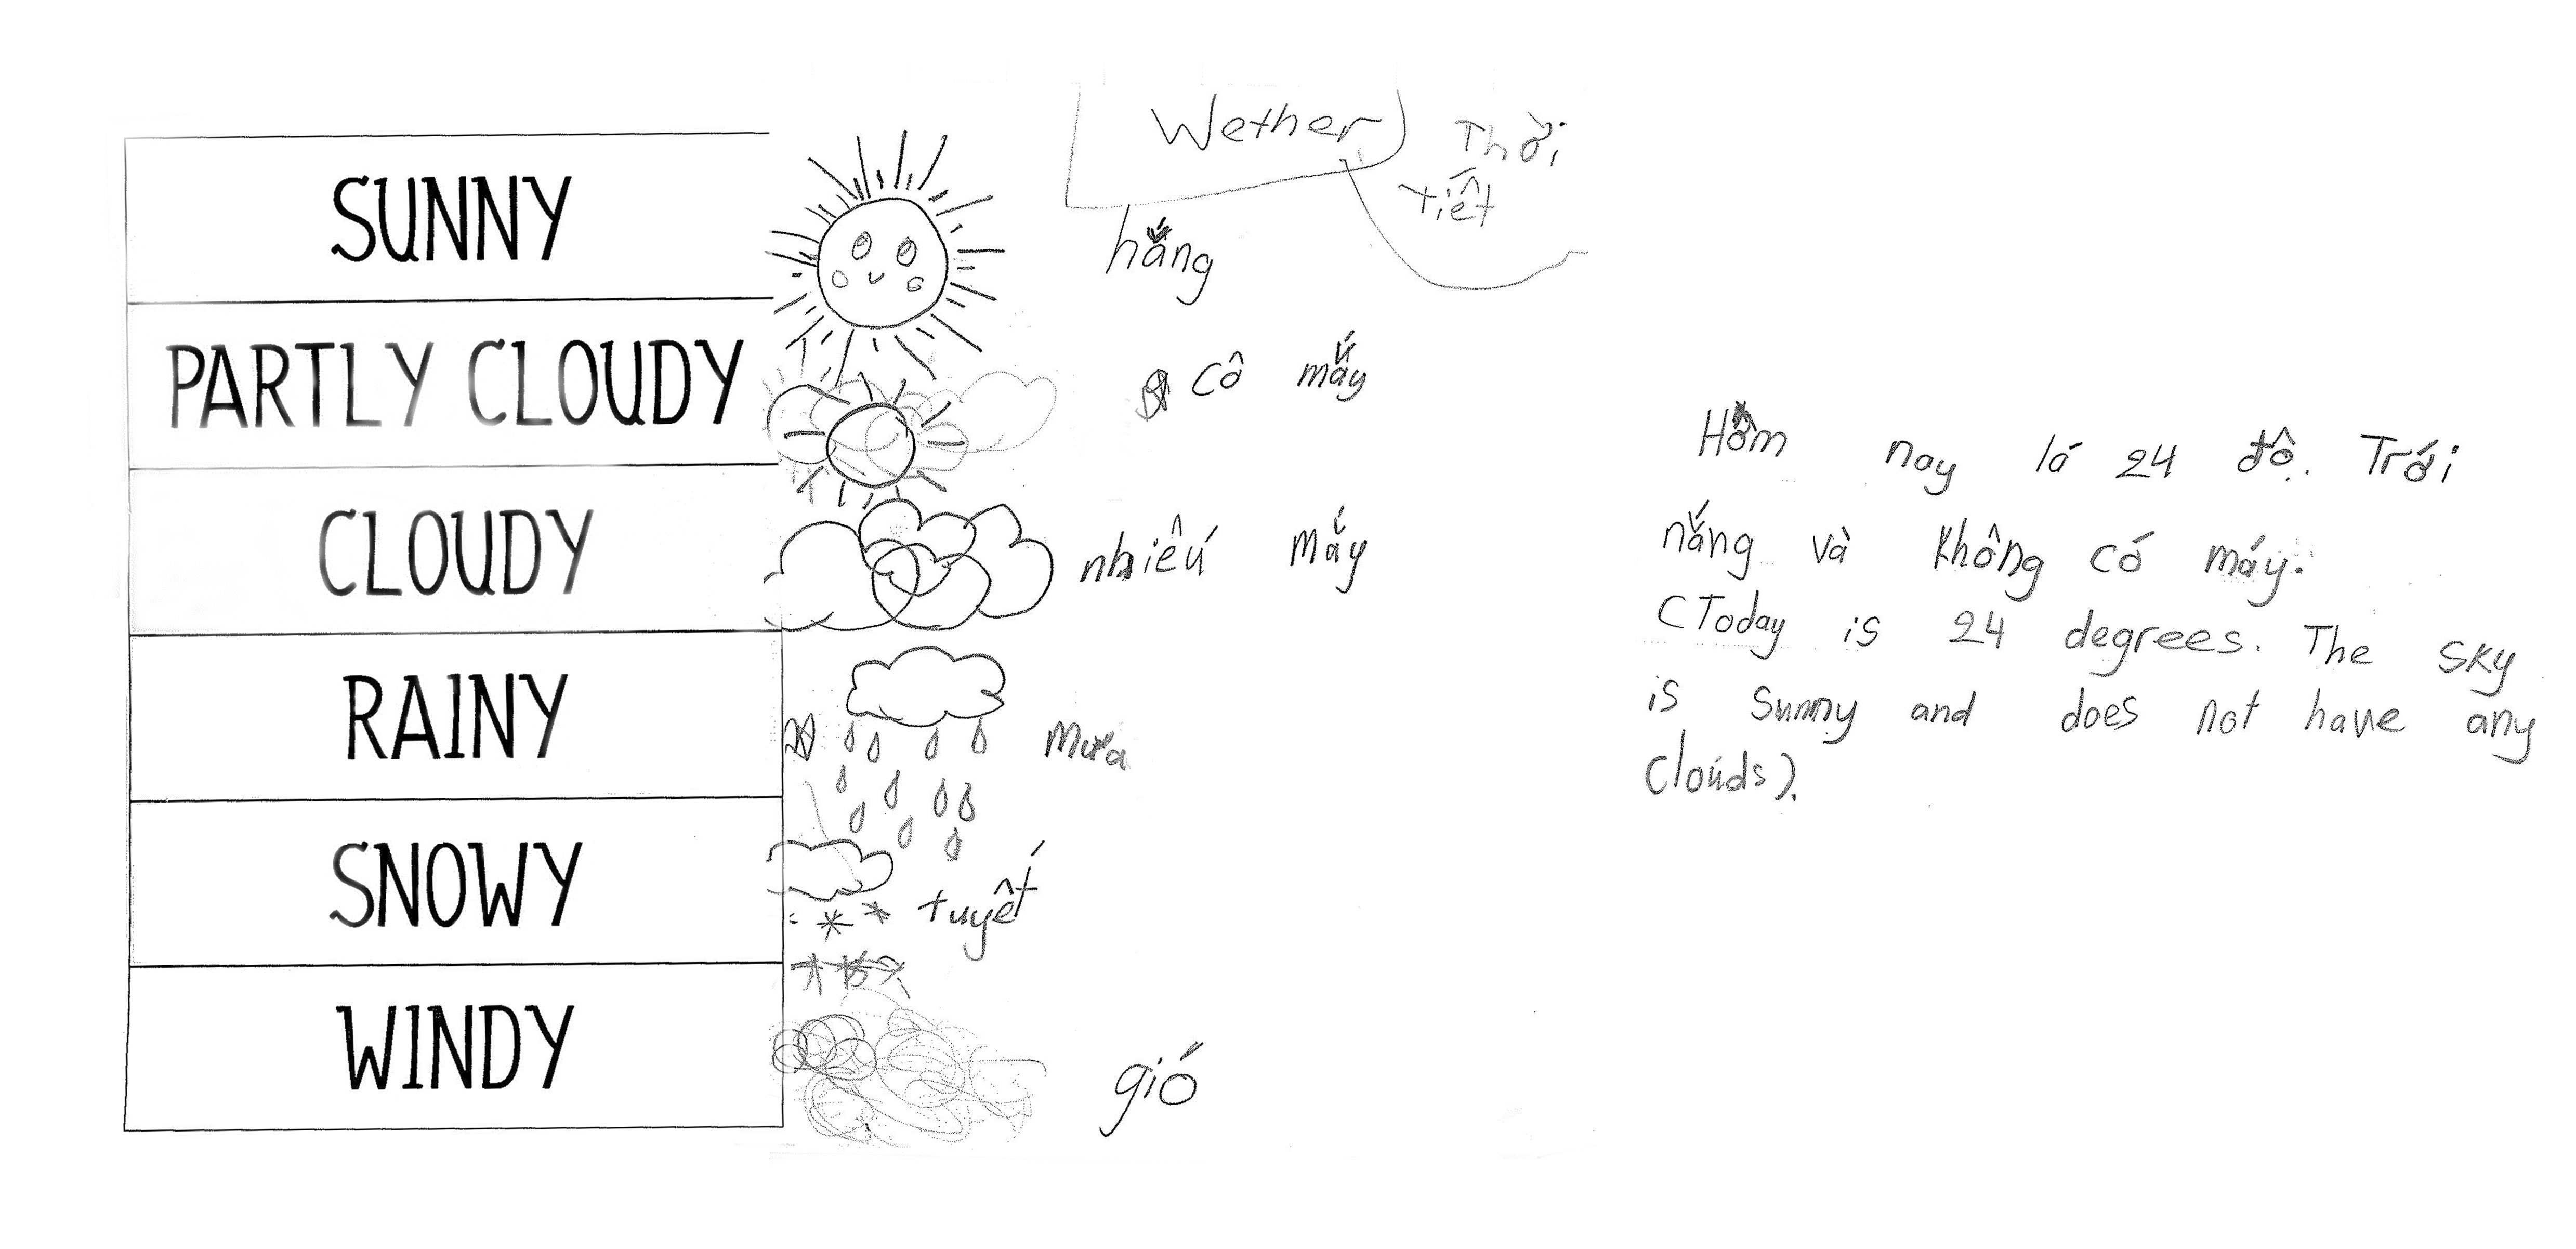 Wether
Thời
tiết
SUNNY
hắng
PARTLY CLOUDY
cô mấy
CLOUDY
nhiêú mấy
RAINY
mưa
SNOWY
tuyết
WINDY
gió
Hôm nay lá 24 độ. Trới
nắng và không có máy.
(Today is 24 degrees. The sky
is sunny and does not have any
clouds).